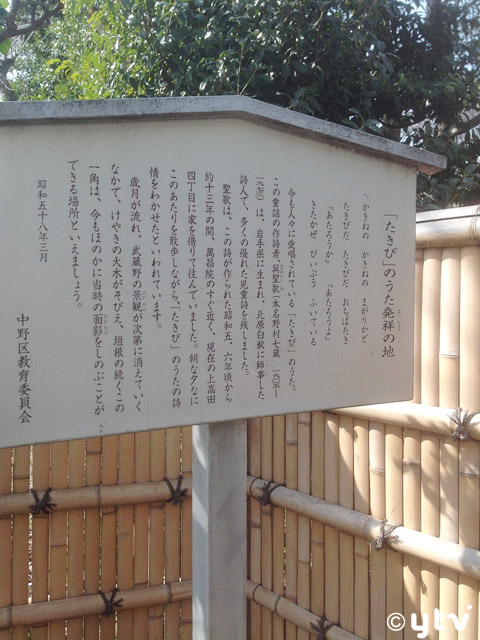 「たきび」のうた発祥の地
はっしょう
「かきねの かきねの まがりかど
たきびだ たきびだ おちばたき
「あたろうか」 「あたろうよ」
きたかぜ ぴいぷう ふいている
今も人々に愛唱されている「たきび」のうた。
この童謡の作詩者、巽聖歌(本名野村七蔵 一九〇五〜
一九七三)は、岩手県に生まれ、北原白秋に師事した
詩人で、多くの優れた児童詩を残しました。
聖歌は、この詩が作られた昭和五、六年頃から
約十三年の間、萬昌院のすぐ近く、現在の上高田
四丁目に家を借りて住んでいました。朝な夕なに
このあたりを散歩しながら、「たきび」のうたの詩
情をわかせたといわれています。
歳月が流れ、武蔵野の景観が次第に消えていく
なかで、けやきの大木がそびえ、垣根の続くこの
一角は、今もほのかに当時の面影をしのぶことが
できる場所といえましょう。
昭和五十八年三月
中野区教育委員会
©ytv